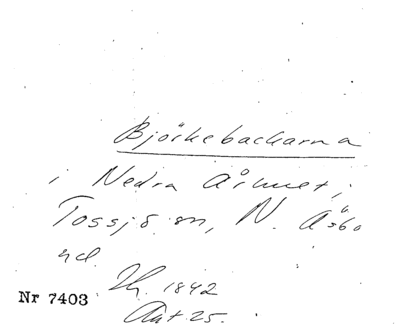 Björkebackarna
i Nedra Århult i
Tossjö sn, N. Åsbo
hd.
Th. 1842
Akt 25.
Nr 7403